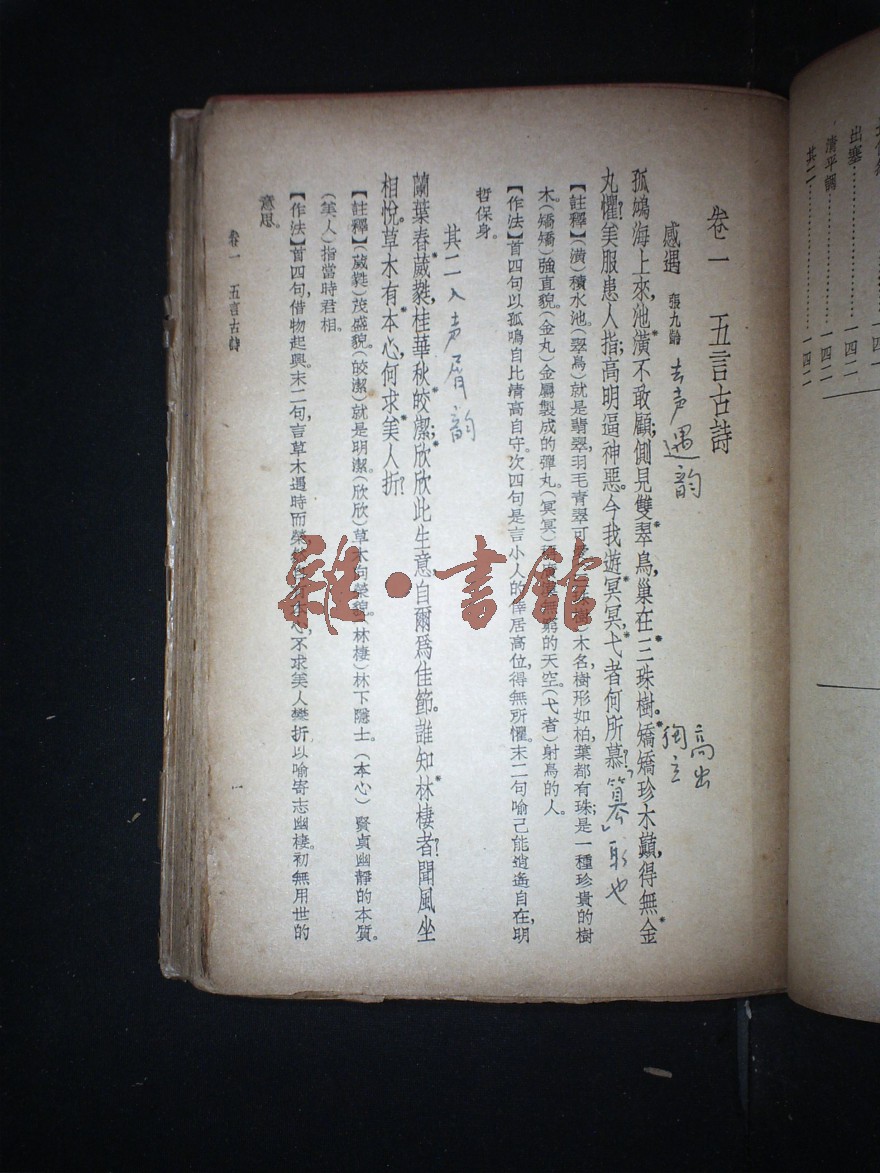 出塞……一四二
清平調……一四二
其二……一四二
卷一 五言古詩
感遇 張九齡 去声遇韵
高出
獨立
孤鴻海上來，池潢不敢顧；側見雙翠鳥，巢在三珠樹。矯矯珍木巔，得無金
丸懼？美服患人指；高明逼神惡。今我遊冥冥，弋者何所慕？「篡」取也
【註釋】（潢）積水池。（翠鳥）就是翡翠，羽毛青翠可 樹）木名，樹形如柏，葉都有珠；是一種珍貴的樹
木。（矯矯）強直貌。（金丸）金屬製成的彈丸。（冥冥） 無窮的天空。（弋者）射鳥的人。
【作法】首四句以孤鳴自比清高自守。次四句是言小人的倖居高位，得無所懼。末二句喻己能逍遙自在，明
哲保身。
其二 入声屑韵
蘭葉春葳蕤，桂華秋皎潔；欣欣此生意，自爾為佳節。誰知林棲者？聞風坐
相悅。草木有本心，何求美人折？
【註釋】（葳蕤）茂盛貌。（皎潔）就是明潔。（欣欣）草木向榮貌。（林棲）林下隱士。（本心）賢貞幽靜的本質。
（美人）指當時君相。
【作法】首四句借物起興。末二句，言草木遇時而榮， 心，不求美人攀折，以喻寄志幽棲。初無用世的
意思。
卷一 五言古詩
一
雜·書館